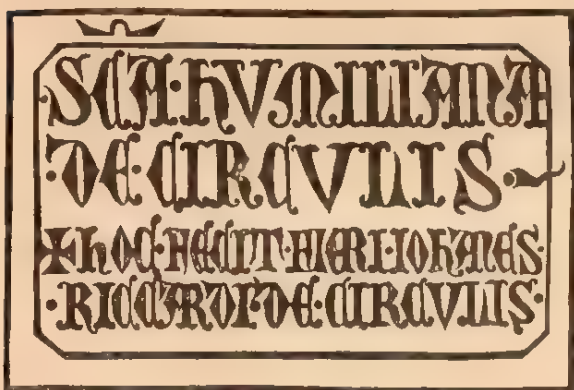 SCA·hVMILIANA
·DE·CIRCVLIS·
✠hOC·FECIT·FIERI·IOhANES·
·RICCARDI·DE·CIRCVLIS·